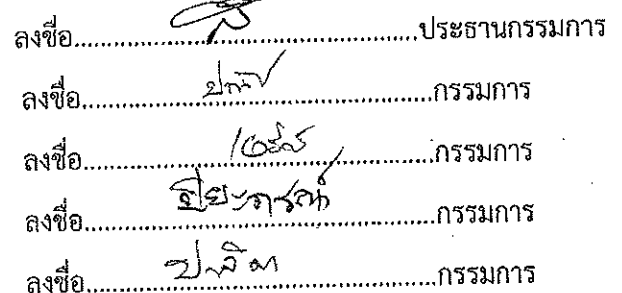 ลงชื่อ.......................................ประธานกรรมการ
ลงชื่อ.......................................กรรมการ
ลงชื่อ.......................................กรรมการ
ลงชื่อ..........ปิยะภรณ์..........กรรมการ
ลงชื่อ.......................................กรรมการ